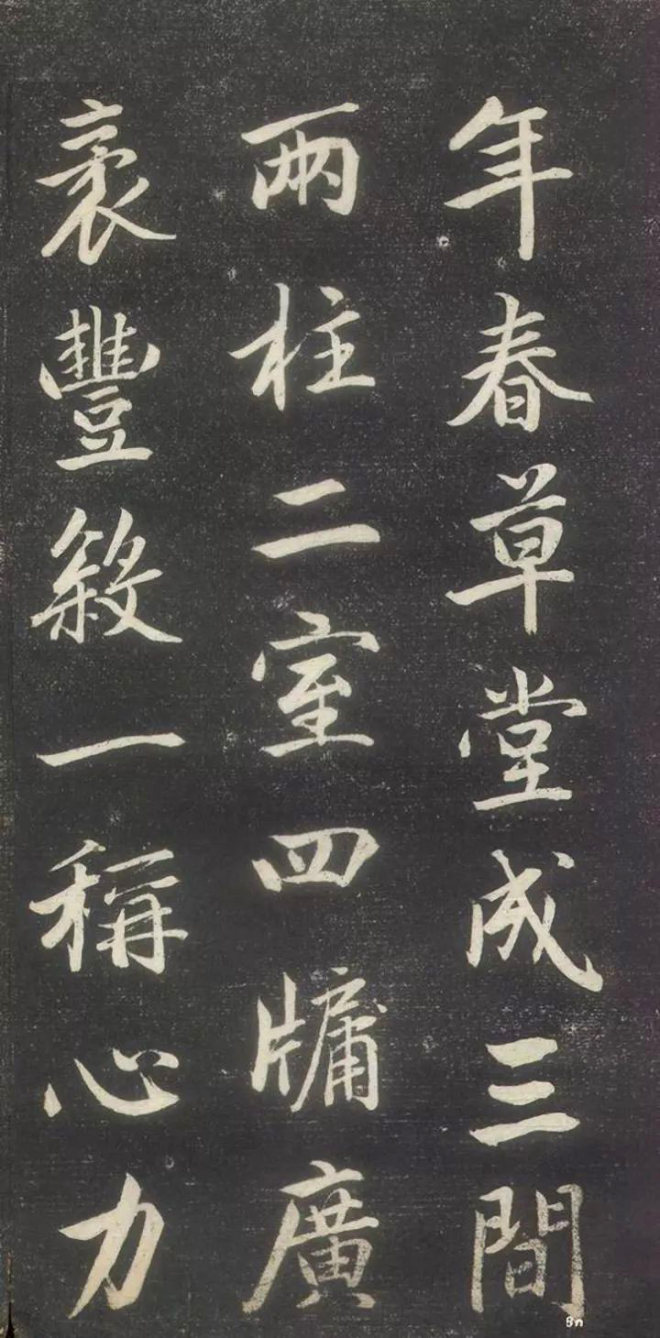 年春草堂成三間
兩柱二室四牖廣
袤豐殺一稱心力